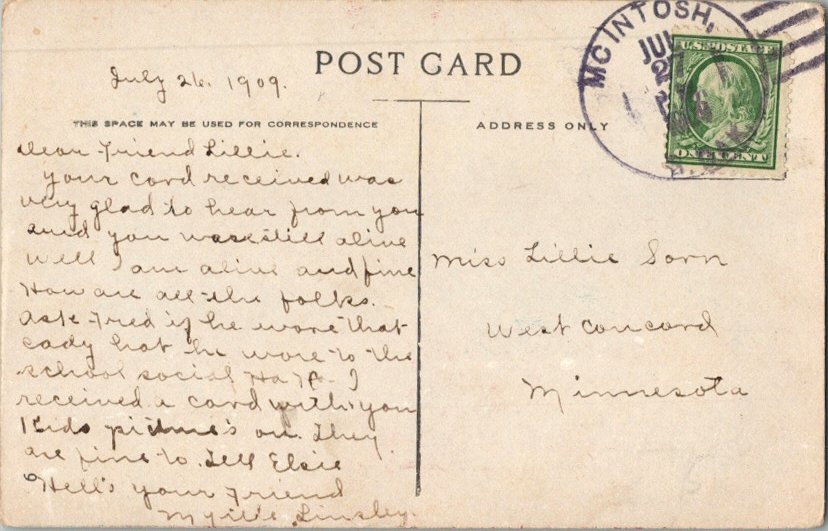 POST CARD
July 26, 1909.
THIS SPACE MAY BE USED FOR CORRESPONDENCE
ADDRESS ONLY
MCINTOSH,
JUL
27
U.S. POSTAGE
ONE CENT
Dear Friend Lillie.
your card received was
very glad to hear from you
and you was still alive
well I am alive and fine
How are all the folks.
Ask Fred if he wore that
cady hat he wore to the
school social Ha Ha I
received a card with you
Kids picture's on. They
are fine to. Tell Elsie
Hell's your Friend
Linsley.
Miss Lillie Sorn
West Concord
Minnesota